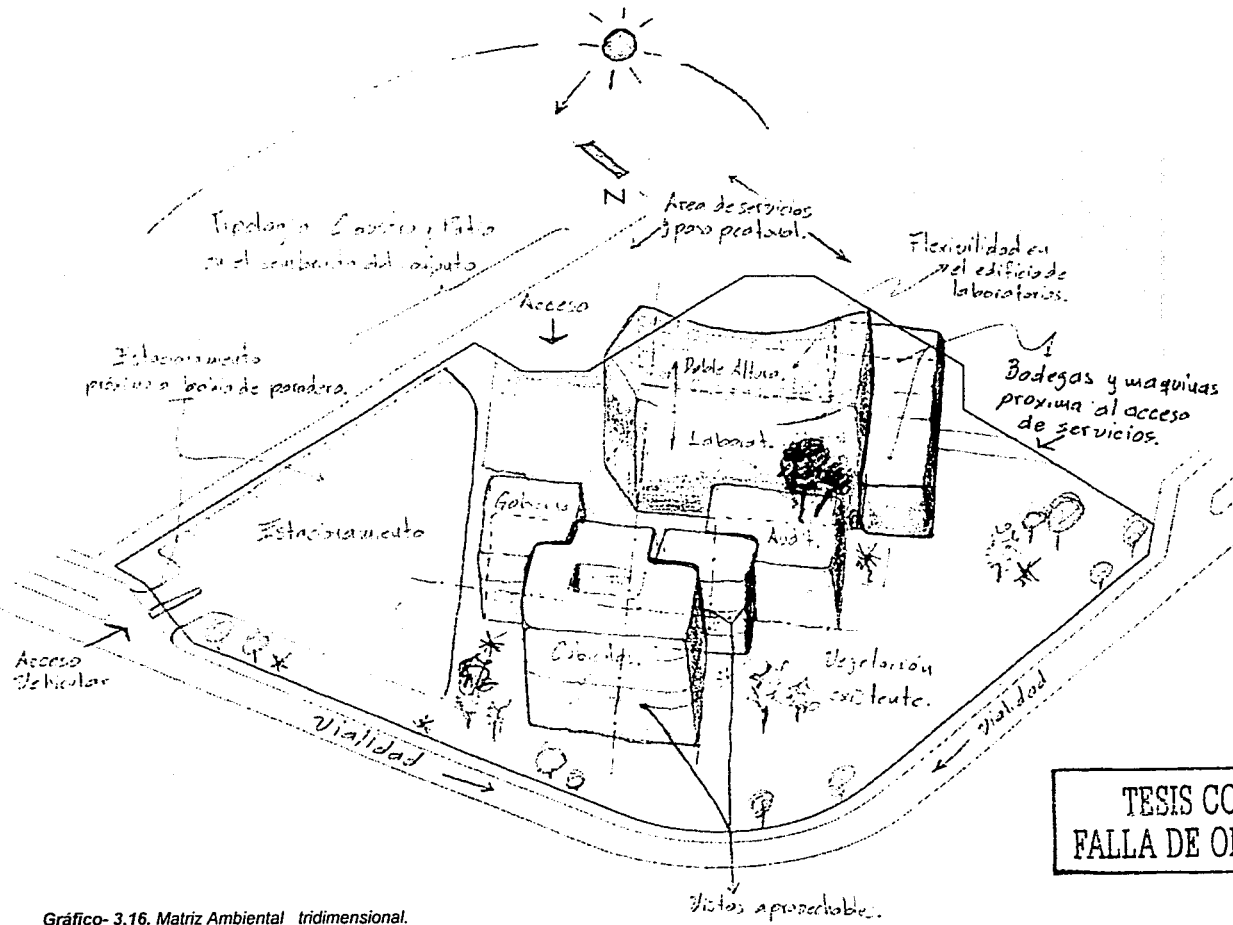 N
Tipología Claustro y Patio
en el sembrado del conjunto
Area de servicios
y paso peatonal.
Flexivilidad en
el edificio de
laboratorios.
Acceso
Estacionamiento
próximo a bahia de paradero.
Doble Altura.
Bodegas y maquinas
proxima al acceso
de servicios.
Laborat.
Gobierno
Audit.
Estacionamiento
Cubiculos.
Vegetación
existente.
Acceso
Vehicular
Vialidad
Vialidad
TESIS CO
FALLA DE O
Vistas aprovechables.
Gráfico- 3.16. Matriz Ambiental tridimensional.